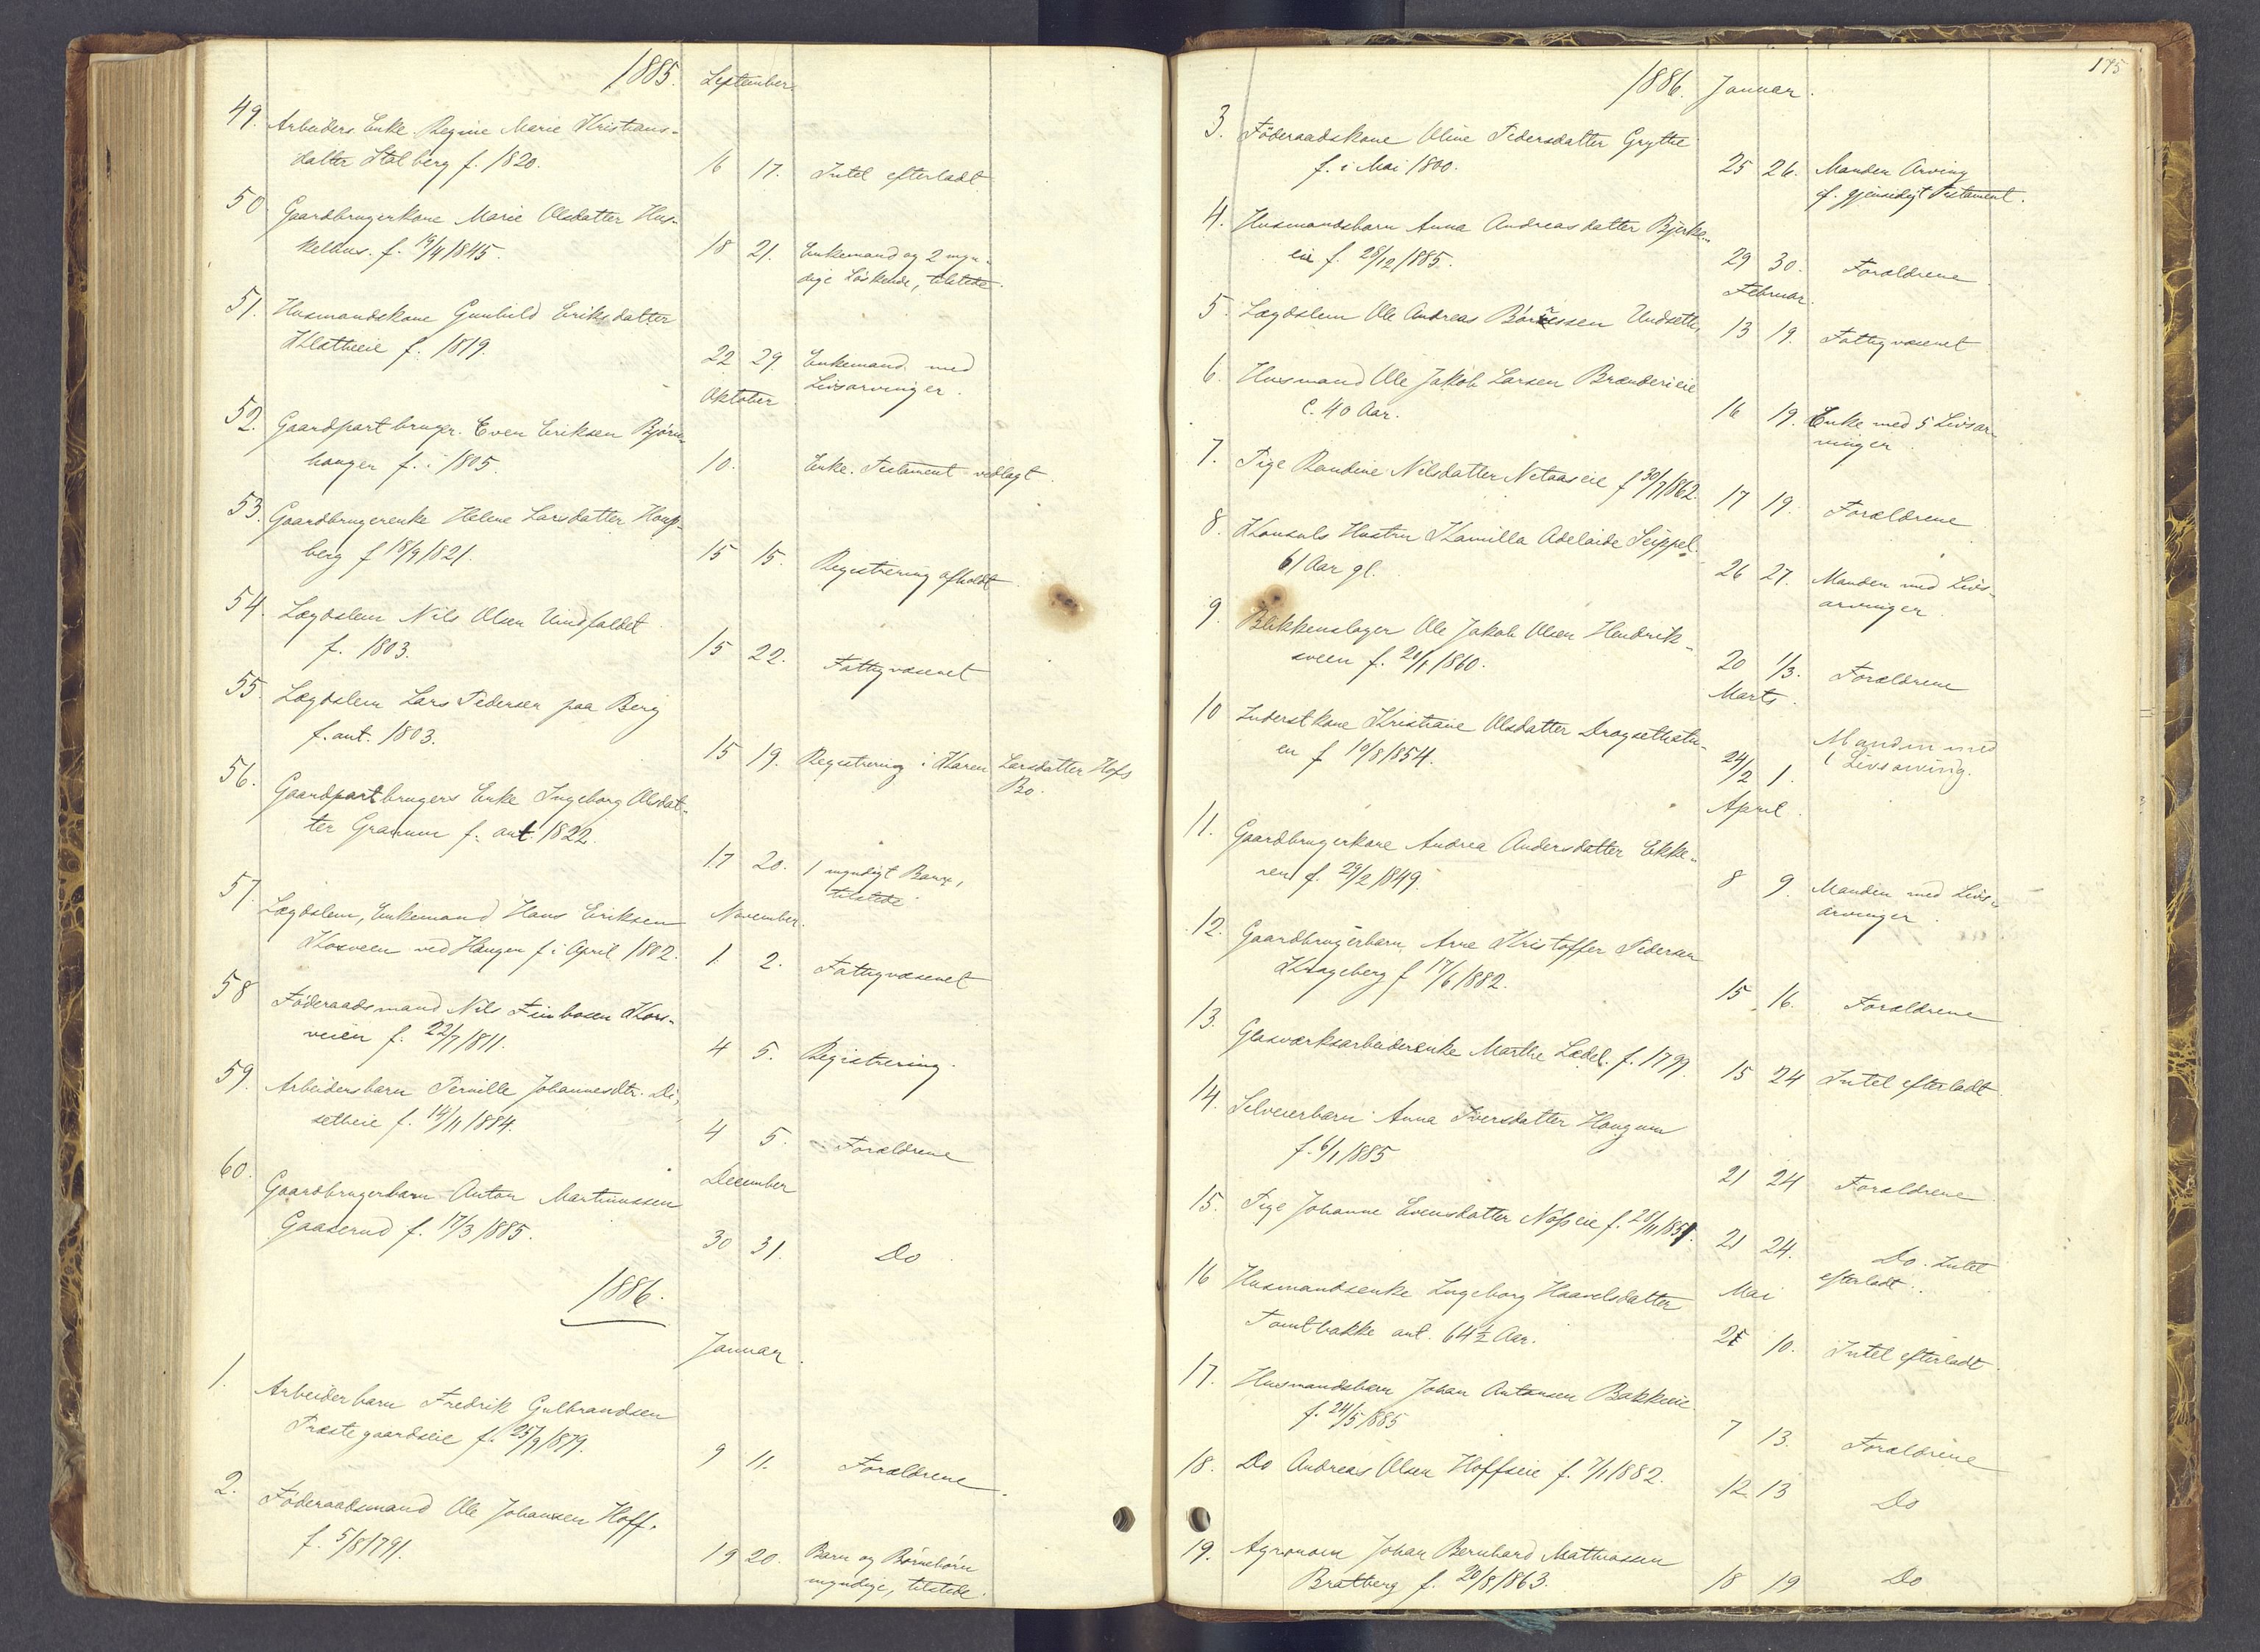 1885. September
49. Arbeiders Enke Regine Marie Kristians-
datter Stalberg f. 1820. 16 17. Intet efterladt
50 Gaardbrugerkone Marie Olsdatter Hus-
kelhus. f. 19/4 1845. 18 21. Enkemand og 2 myn-
dige Söskende, tilstede.
51. Husmandskone Gunhild Eriksdatter
Kløttveie f. 1819. 22 29 Enkemand med
Livsarvinger.
Oktober
52. Gaardpartbruger Even Eriksen Bjørn-
hauger f. i 1805. 10. Enke. Testament vedlagt.
53. Gaardbrugerenke Helene Larsdatter Houg-
berg f 18/9 1821. 15 15. Registrering afholdt
54. Lægdslem Nils Olsen Vindfaldet
f. 1803. 15 22. Fattigvæsenet
55. Lægdslem Lars Pedersen paa Berg
f. ant. 1803. 15 19. Registrering i Karen Larsdatter Hofs
Bo.
56. Gaardpartbrugers Enke Ingeborg Olsdat-
ter Granum f. ant. 1822. 17 20. 1 myndigt Barn,
tilstede
57. Lægdslem, Enkemand Hans Eriksen November.
Kosveen ved Haugen f i April 1802. 1. 2. Fattigvæsenet
58 Föderaadsmand Nils Finboesen Kors-
veien f. 22/7 1811. 4 5. Registrering.
59. Arbeidersbarn Pernille Johannesdtr. Di-
setheie f. 14/11 1884. 4 5. Forældrene
December
60. Gaardbrugerbarn Anton Martinussen
Gaaserud f. 17/3 1885. 30 31. Do
1886.
Januar.
1. Arbeiderbarn Fredrik Gulbrandsen
Præstegaardseie f. 25/9 1879. 9 11. Forældrene.
2. Föderaadsmand Ole Johansen Hoff.
f. 5/8 1791. 19 20. Barn og Börnebörn
myndige, tilstede.
175
1886. Januar.
3. Föderaadskone Oline Pedersdatter Grythe
f. i Mai 1800. 25 26. Manden Arving
cf. gjensidigt Testament.
4. Husmandsbarn Anna Andreasdatter Bjerke-
eie f. 28/12 1885. 29 30. Forældrene
Februar.
5. Lægdslem Ole Andreas Undseth 13 19. Fattigvæsenet
6. Husmand Ole Jakob Larsen Brænderieie
c. 40 Aar. 16 19. Enke med 5 Livsar-
vinger.
7. Pige Randine Nilsdatter Netaaseie f 30/7 1862. 17 19. Forældrene
8. Konsuls Hustru Kamilla Adelaide Seippel.
61 Aar gl. 26 27. Manden med Livs-
arvinger.
9. Blikkenslager Ole Jakob Olsen Hendrik-
sveen f. 20/1 1860. 20 1/3. Forældrene
Marts.
10 Inderstkone Kristiane Olsdatter Drogsethstu-
en f 10/8 1854. 24/2 1. Manden med
1 Livsarving.
April.
11. Gaardbrugerkone Andrea Andersdatter Ekke-
ren f. 29/2 1849. 8 9. Manden med Livs-
arvinger.
12. Gaardbrugerbarn Arne Kristoffer Pedersen
Krageberg f 17/6 1882. 15 16. Forældrene
13. Glasværksarbeiderenke Marthe Lædel. f. 1799. 15 24 Intet efterladt.
14. Selveierbarn Anna Iversdatter Haugum
f. 6/1 1885 21 24 Forældrene
15. Pige Johanne Evensdatter Nøss eie f. 28/11 1851. 21 24. Do. Intet
efterladt.
16 Husmandsenke Ingeborg Haavelsdatter Mai
Tomtbakke ant. 64 1/2 Aar. 10. Intet efterladt.
17. Husmandsbarn Johan Antonsen Bakkeeie
f. 24/5 1885 7 13. Forældrene
18. Do Andreas Olsen Hoffseie f. 7/1 1882. 12. 13 Do
19. Agronom Johan Bernhard Mathiassen
Bratberg f. 20/8 1863. 18 19 Do